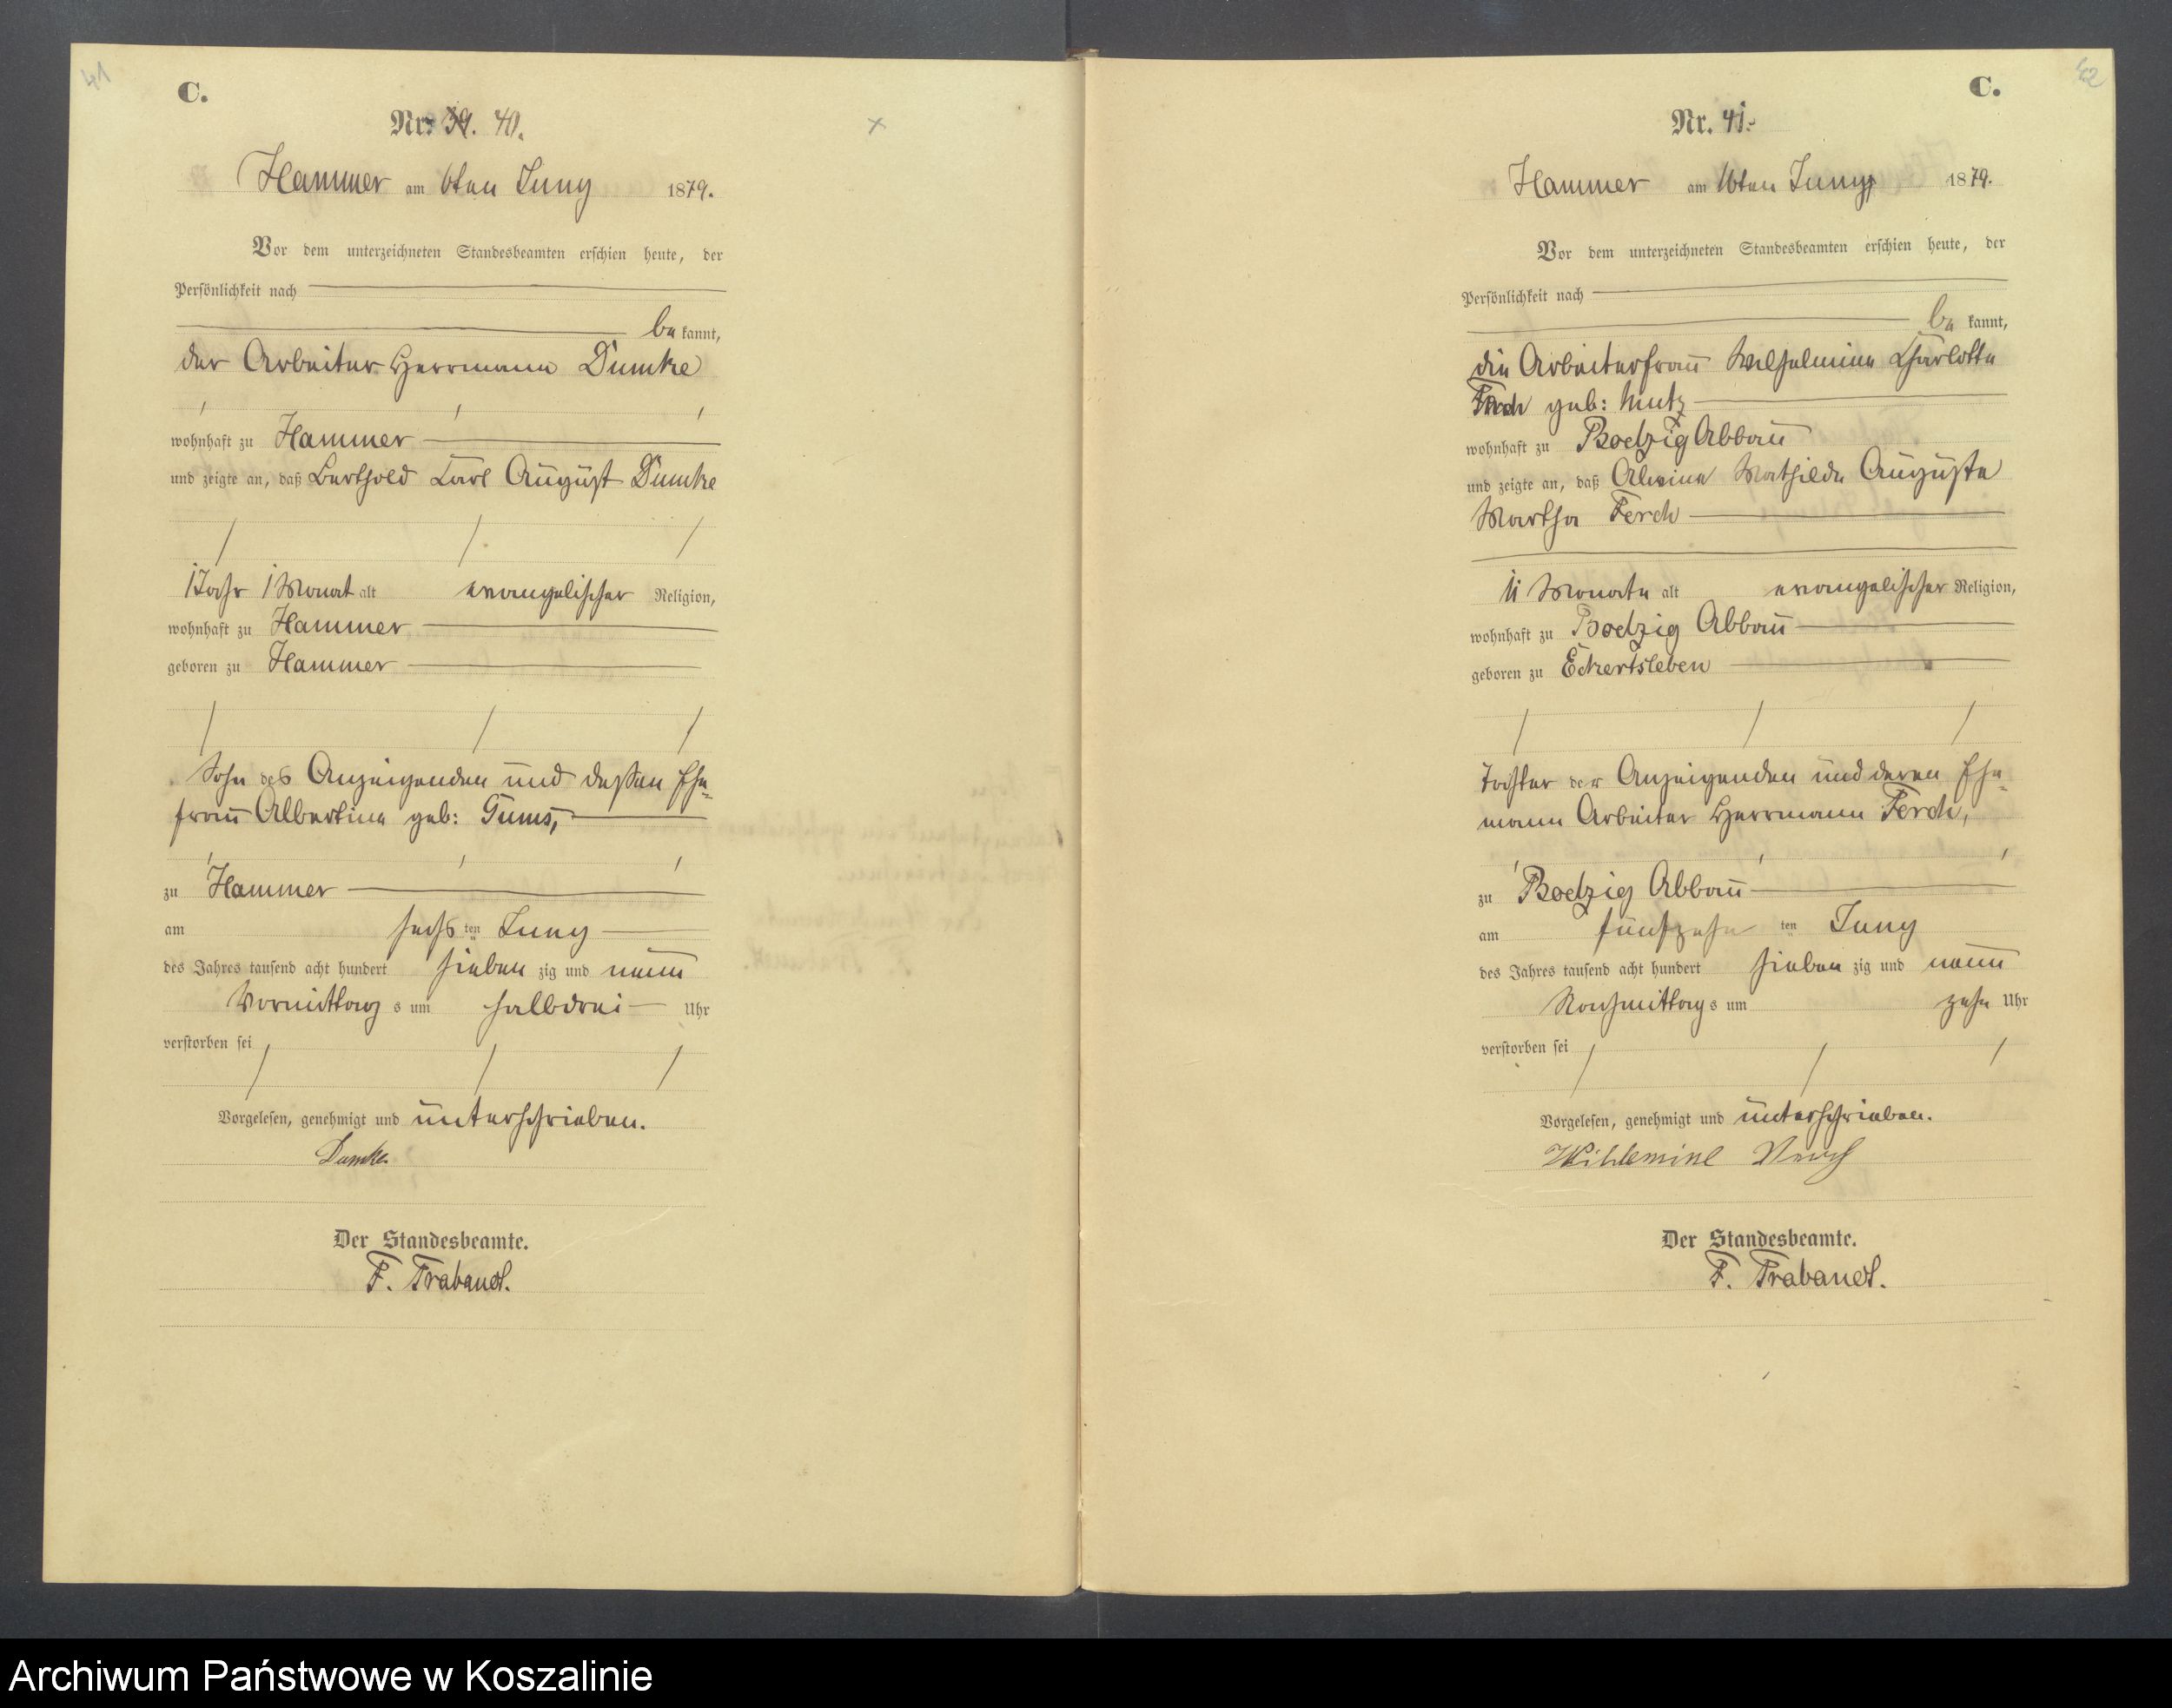 41
C.
Nr. 39. 40.
Hammer am 6ten Juny 1879.
Vor dem unterzeichneten Standesbeamten erschien heute, der
Persönlichkeit nach
be kannt,
der Arbeiter Herrmann Dumke
wohnhaft zu Hammer
und zeigte an, daß Berthold Carl August Dumke
1 Jahr 1 Monat alt evangelischer Religion,
wohnhaft zu Hammer
geboren zu Hammer
Sohn des Anzeigenden und dessen Ehe-
frau Albertine geb: Gums,
zu Hammer
am sechs ten Juny
des Jahres tausend acht hundert sieben zig und neun
Vormittag s um halbdrei Uhr
verstorben sei
Vorgelesen, genehmigt und unterschrieben.
Dumke
Der Standesbeamte.
F. Trabandt.
42
C.
Nr. 41.
Hammer am 16ten Juny 1879.
Vor dem unterzeichneten Standesbeamten erschien heute, der
Persönlichkeit nach
be kannt,
die Arbeiterfrau Wilhelmine Charlotte
Ferch geb: Mutz
wohnhaft zu Roetzig Abbau
und zeigte an, daß Alwine Mathilde Auguste
Martha Ferch
11 Monate alt evangelischer Religion,
wohnhaft zu Roetzig Abbau
geboren zu Eckertsleben
Tochter der Anzeigenden und deren Ehe-
mann Arbeiter Herrmann Ferch,
zu Roetzig Abbau
am fünfzehn ten Juny
des Jahres tausend acht hundert sieben zig und neun
Nachmittag s um zehn Uhr
verstorben sei
Vorgelesen, genehmigt und unterschrieben.
Wihlemine
Der Standesbeamte.
F. Trabandt.
Archiwum Państwowe w Koszalinie